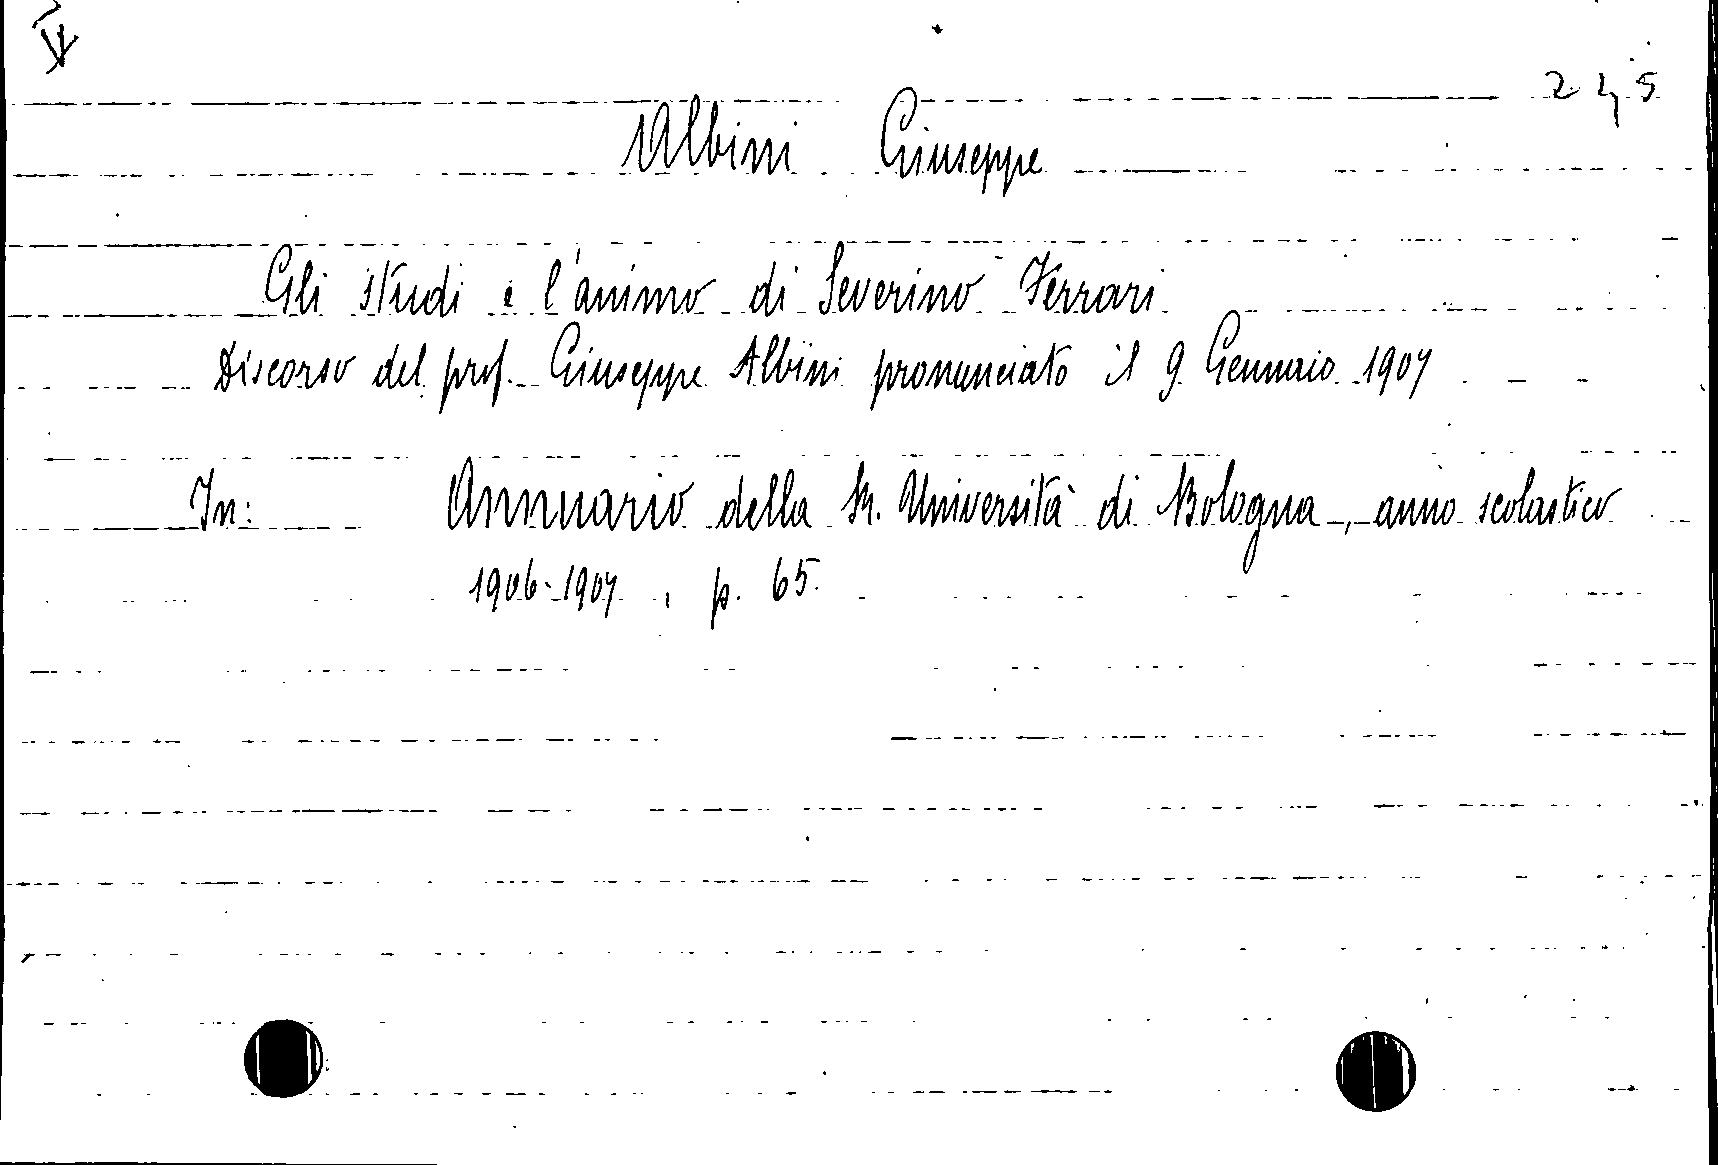 245
Albini Giuseppe
Gli studi e l'animo di Severino Ferrari
Discorso del prof. Giuseppe Albini pronunciato il 9 Gennaio 1907
In: Annuario della R. Università di Bologna, anno scolastico
1906-1907, p. 65.